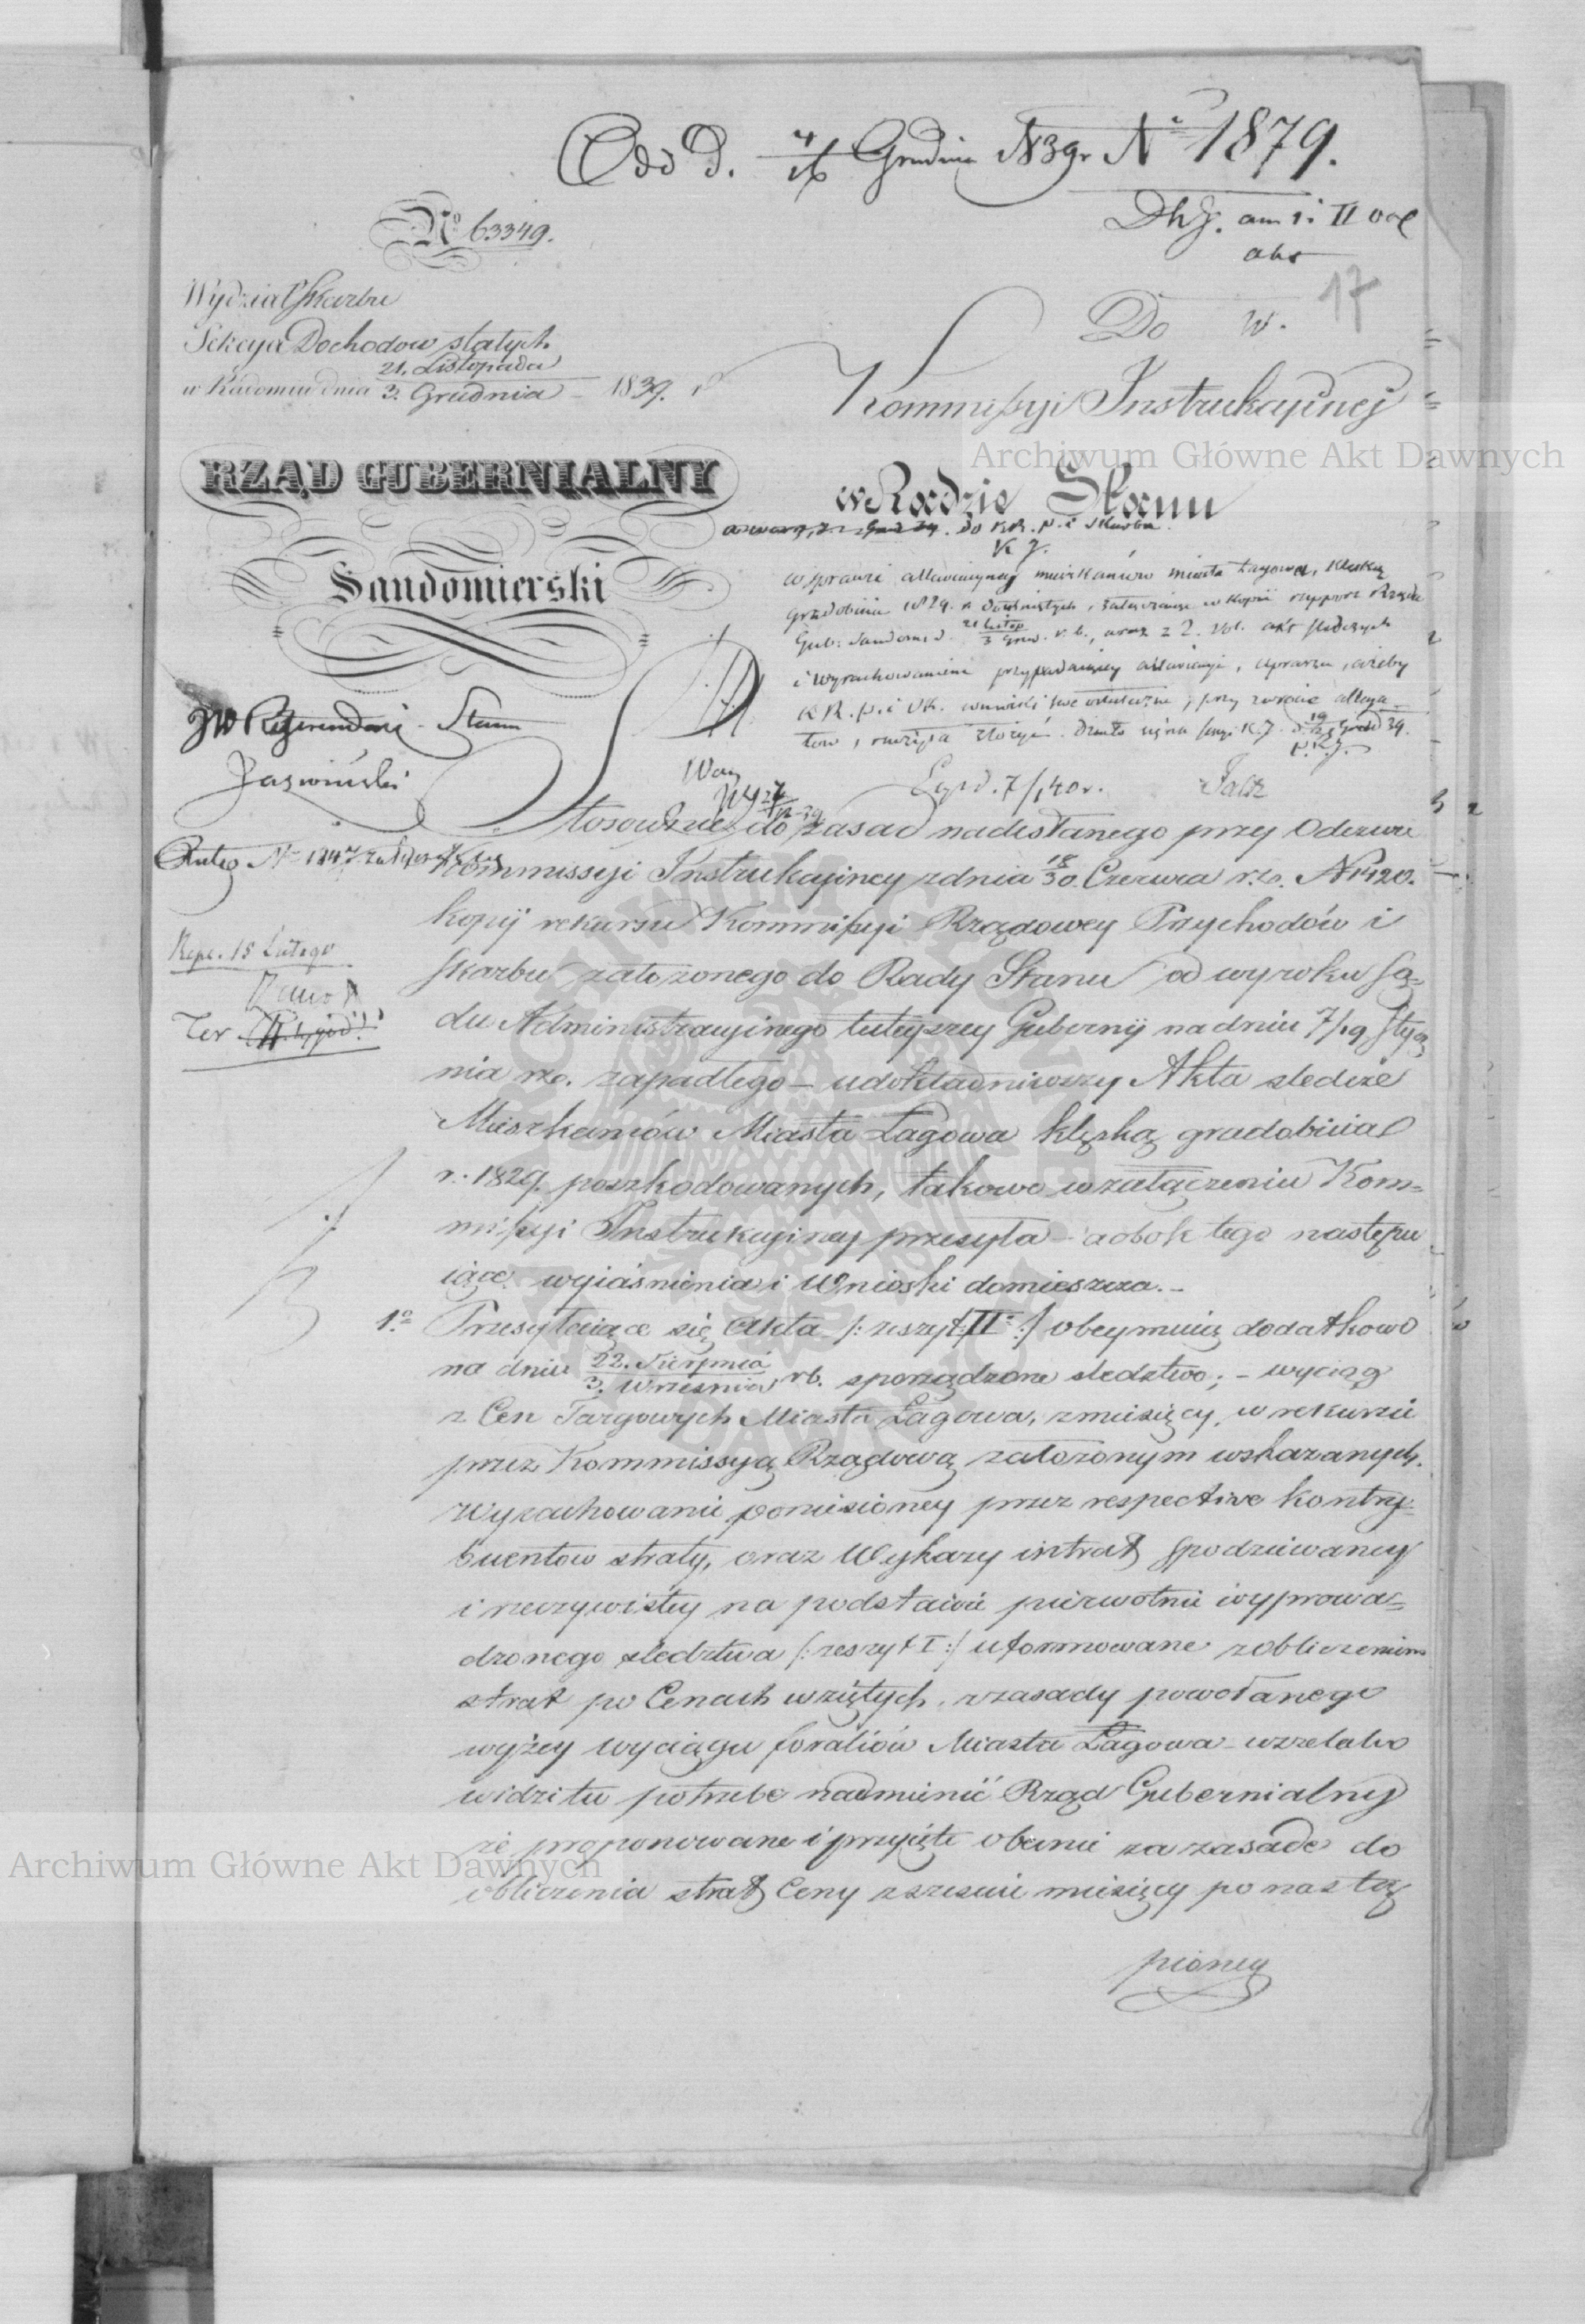 Odd D. 4/16 Grudnia 1839 r N 1879.
17
No 63349.
Wydział Skarbu
Sekcya Dochodow stałych
w Radomiu dnia 21. Listopada / 3. Grudnia 1839. r
Do W.
Kommissyi Instrukcyiney
w Radzie Stanu
RZĄD GUBERNIALNY
Sandomierski
do K.R.P. i Skarbu.
K J.
w sprawie allewiacyjnej mieszkańców miasta Łagowa, klęską
gradobicia 1829. r. dotkniętych, załączając w kopii rapport Rządu
Gub: Sandom. d. 21 Listop / 3 Grud. r. b., oraz z 2. Vol. akt śledczych
i wyrachowaniem przypadającej allewiacyi, uprasza, ażeby
K R. P. i SK. wnioski swe ostateczne, przy zwrocie allega
tow, raczyła złożyć. Działo się na sessyi K.J. d. Grud 39.
JW Referendarz Stanu
Jaźwiński
Exp d. 7/1 40 r.
Stosownie do zasad nadesłanego przy Odezwie
Kommissyi Instrukcyiney z dnia 18/30. Czerwca r. b. N 1420.
kopij rekursu Kommissyi Rządowey Przychodów i
Skarbu założonego do Rady Stanu od wyroku Są=
du Administracyinego tuteyszey Gubernij na dniu 7/19 Stycz
nia r. b. zapadłego – udokładniwszy Akta śledcze
Mieszkańców Miasta Łagowa klęską gradobicia
r. 1829. poszkodowanych, takowe w załączeniu Kom=
missyi Instrukcyiney przesyła – a obok tego następu
iące wyiaśnienia i Wnioski domieszcza. –
1.o Przesyłaiące się Akta /: zeszyt II :/ obeymuią dodatkowo
na dniu 22. Sierpnia / 3. Września rb. sporządzone śledztwo; – wyciąg
z Cen Targowych Miasta Łagowa, z miesięcy w rekursie
przez Kommissyą Rządową założonym wskazanych.
Wyrachowanie poniesioney przez respective kontry=
buentow straty, oraz Wykazy intraty spodziewaney
i rzeczywistey na podstawie pierwotnie wyprowa=
dzonego śledztwa /: zeszyt I :/ uformowane z obliczeniem
strat po Cenach wziętych, z zasady powołanego
wyżey wyciągu foraliów Miasta Łagowa – wszelako
widzi tu potrzebę nadmienić Rząd Gubernialny
że proponowane i przyięte obecnie za zasadę do
obliczenia straty Ceny z sześciu miesięcy po nastę
pioney
Kepc. 15 Lutego
Archiwum Główne Akt Dawnych
Archiwum Główne Akt Dawnych